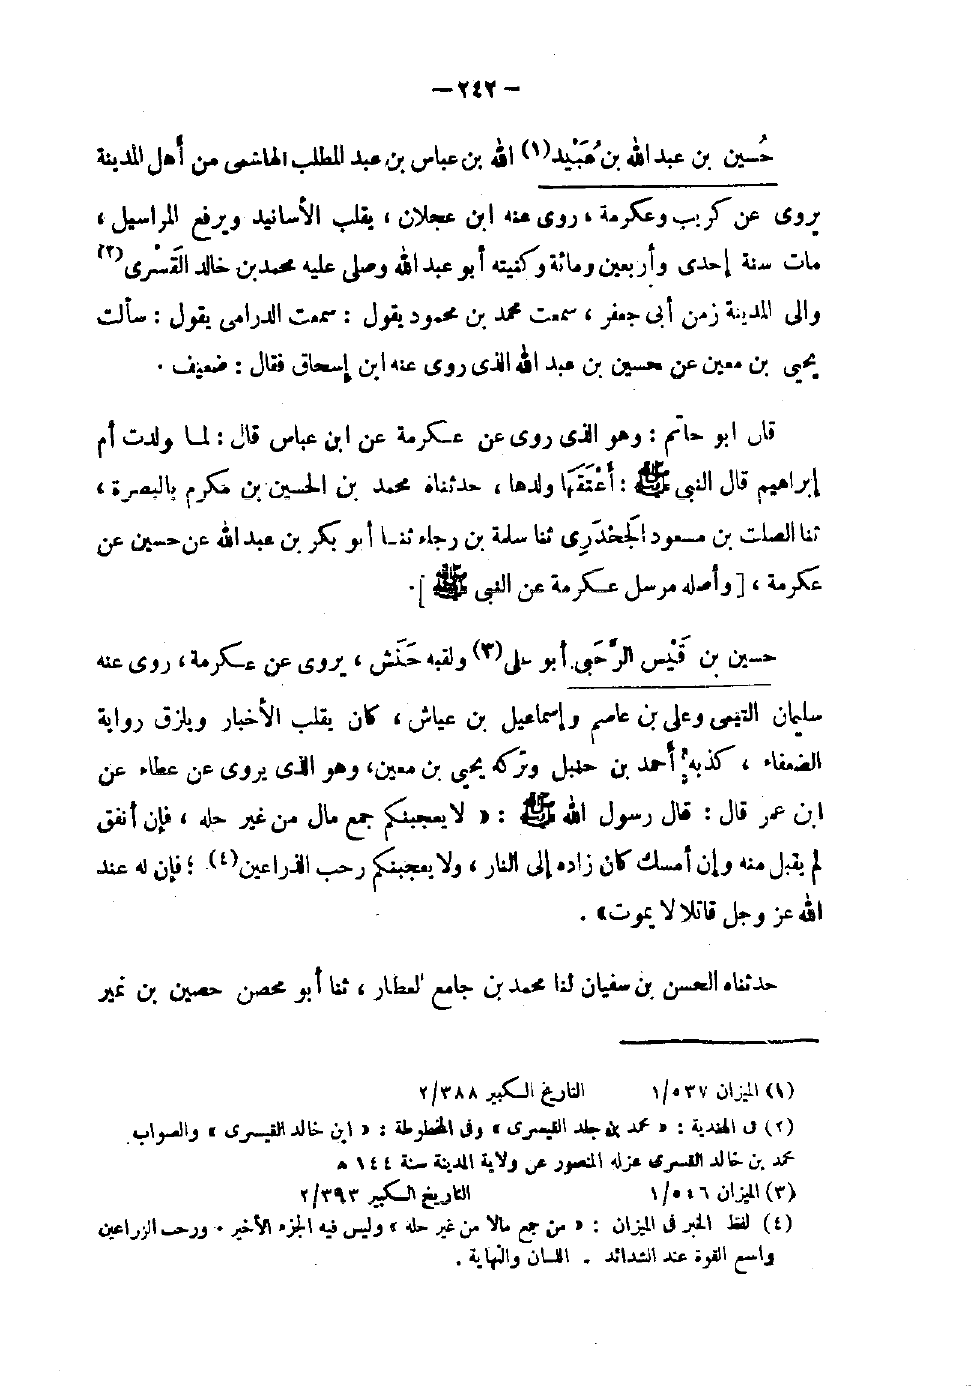 – ٢٤٢ –
حُسين بن عبد الله بن عُبَيْد(١) الله بن عباس بن عبد المطلب الهاشمى من أهل المدينة
يروى عن كريب وعكرمة ، روى عنه ابن عجلان ، يقلب الأسانيد ويرفع المراسيل ،
مات سنة إحدى وأربعين ومائة وكنيته أبو عبد الله وصلى عليه محمد بن خالد القَسْرى(٢)
والى المدينة زمن أبى جعفر ، سمعت محمد بن محمود يقول : سمعت الدرامى يقول : سألت
يحيى بن معين عن حسين بن عبد الله الذى روى عنه ابن إسحاق فقال : ضعيف .
قال ابو حاتم : وهو الذى روى عن عكرمة عن ابن عباس قال : لما ولدت أم
إبراهيم قال النبى ﷺ : أَعْتَقَها ولدها ، حدثناه محمد بن الحسين بن مكرم بالبصرة ،
ثنا الصلت بن مسعود الجَحْدَرِى ثنا سلمة بن رجاء ثنا أبو بكر بن عبد الله عن حسين عن
عكرمة ، [ وأصله مرسل عكرمة عن النبى ﷺ ].
حسين بن قَيْس الرَّحَبى أبو على(٣) ولقبه حَنَش ، يروى عن عكرمة ، روى عنه
سليمان التيمى وعلى بن عاصم وإسماعيل بن عياش ، كان يقلب الأخبار ويلزق رواية
الضعفاء ، كذبه أحمد بن حنبل وتركه يحيى بن معين، وهو الذى يروى عن عطاء عن
ابن عمر قال : قال رسول الله ﷺ : « لا يعجبنكم جمع مال من غير حله ، فإن أنفق
لم يقبل منه وإن أمسك كان زاده إلى النار ، ولا يعجبنكم رحب الذراعين(٤) ؛ فإن له عند
الله عز وجل قاتلا لا يموت» .
حدثناه الحسن بن سفيان ثنا محمد بن جامع العطار ، ثنا أبو محصن حصين بن نمير
(١) الميزان ٥٣٧/١ التاريخ الكبير ٣٨٨/٢
(٢) فى الهندية : « محمد بن جلد القيسرى » وفى المخطوطة : « ابن خالد القيسرى » والصواب
محمد بن خالد القسرى عزله المنصور عن ولاية المدينة سنة ١٤٤ ه
(٣) الميزان ٥٤٦/١ التاريخ الكبير ٣٩٣/٢
(٤) لفظ الخبر فى الميزان : « من جمع مالا من غير حله » وليس فيه الجزء الأخير . ورحب الزراعين
واسع القوة عند الشدائد . اللسان والنهاية .